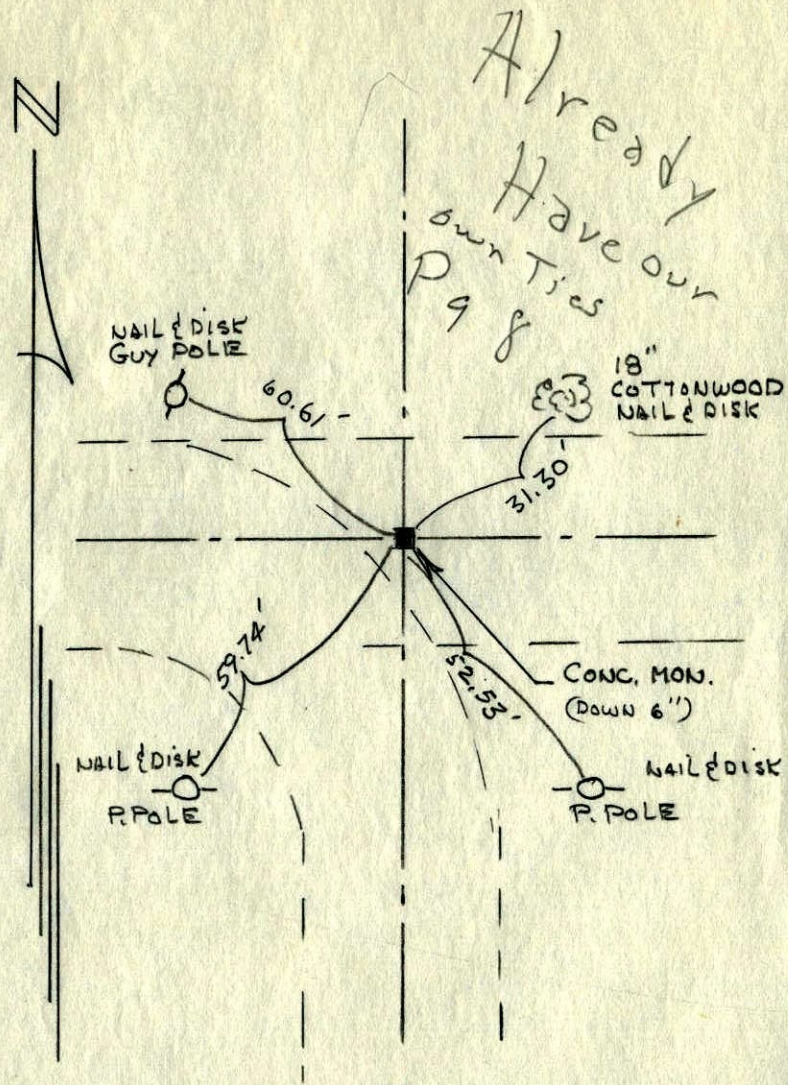 Already
Have our
own Ties
Pg 8
N
NAIL & DISK
GUY POLE
60.61'
18"
COTTONWOOD
NAIL & DISK
31.30'
59.74'
52.53'
CONC. MON.
(DOWN 6")
NAIL & DISK
P. POLE
NAIL & DISK
P. POLE